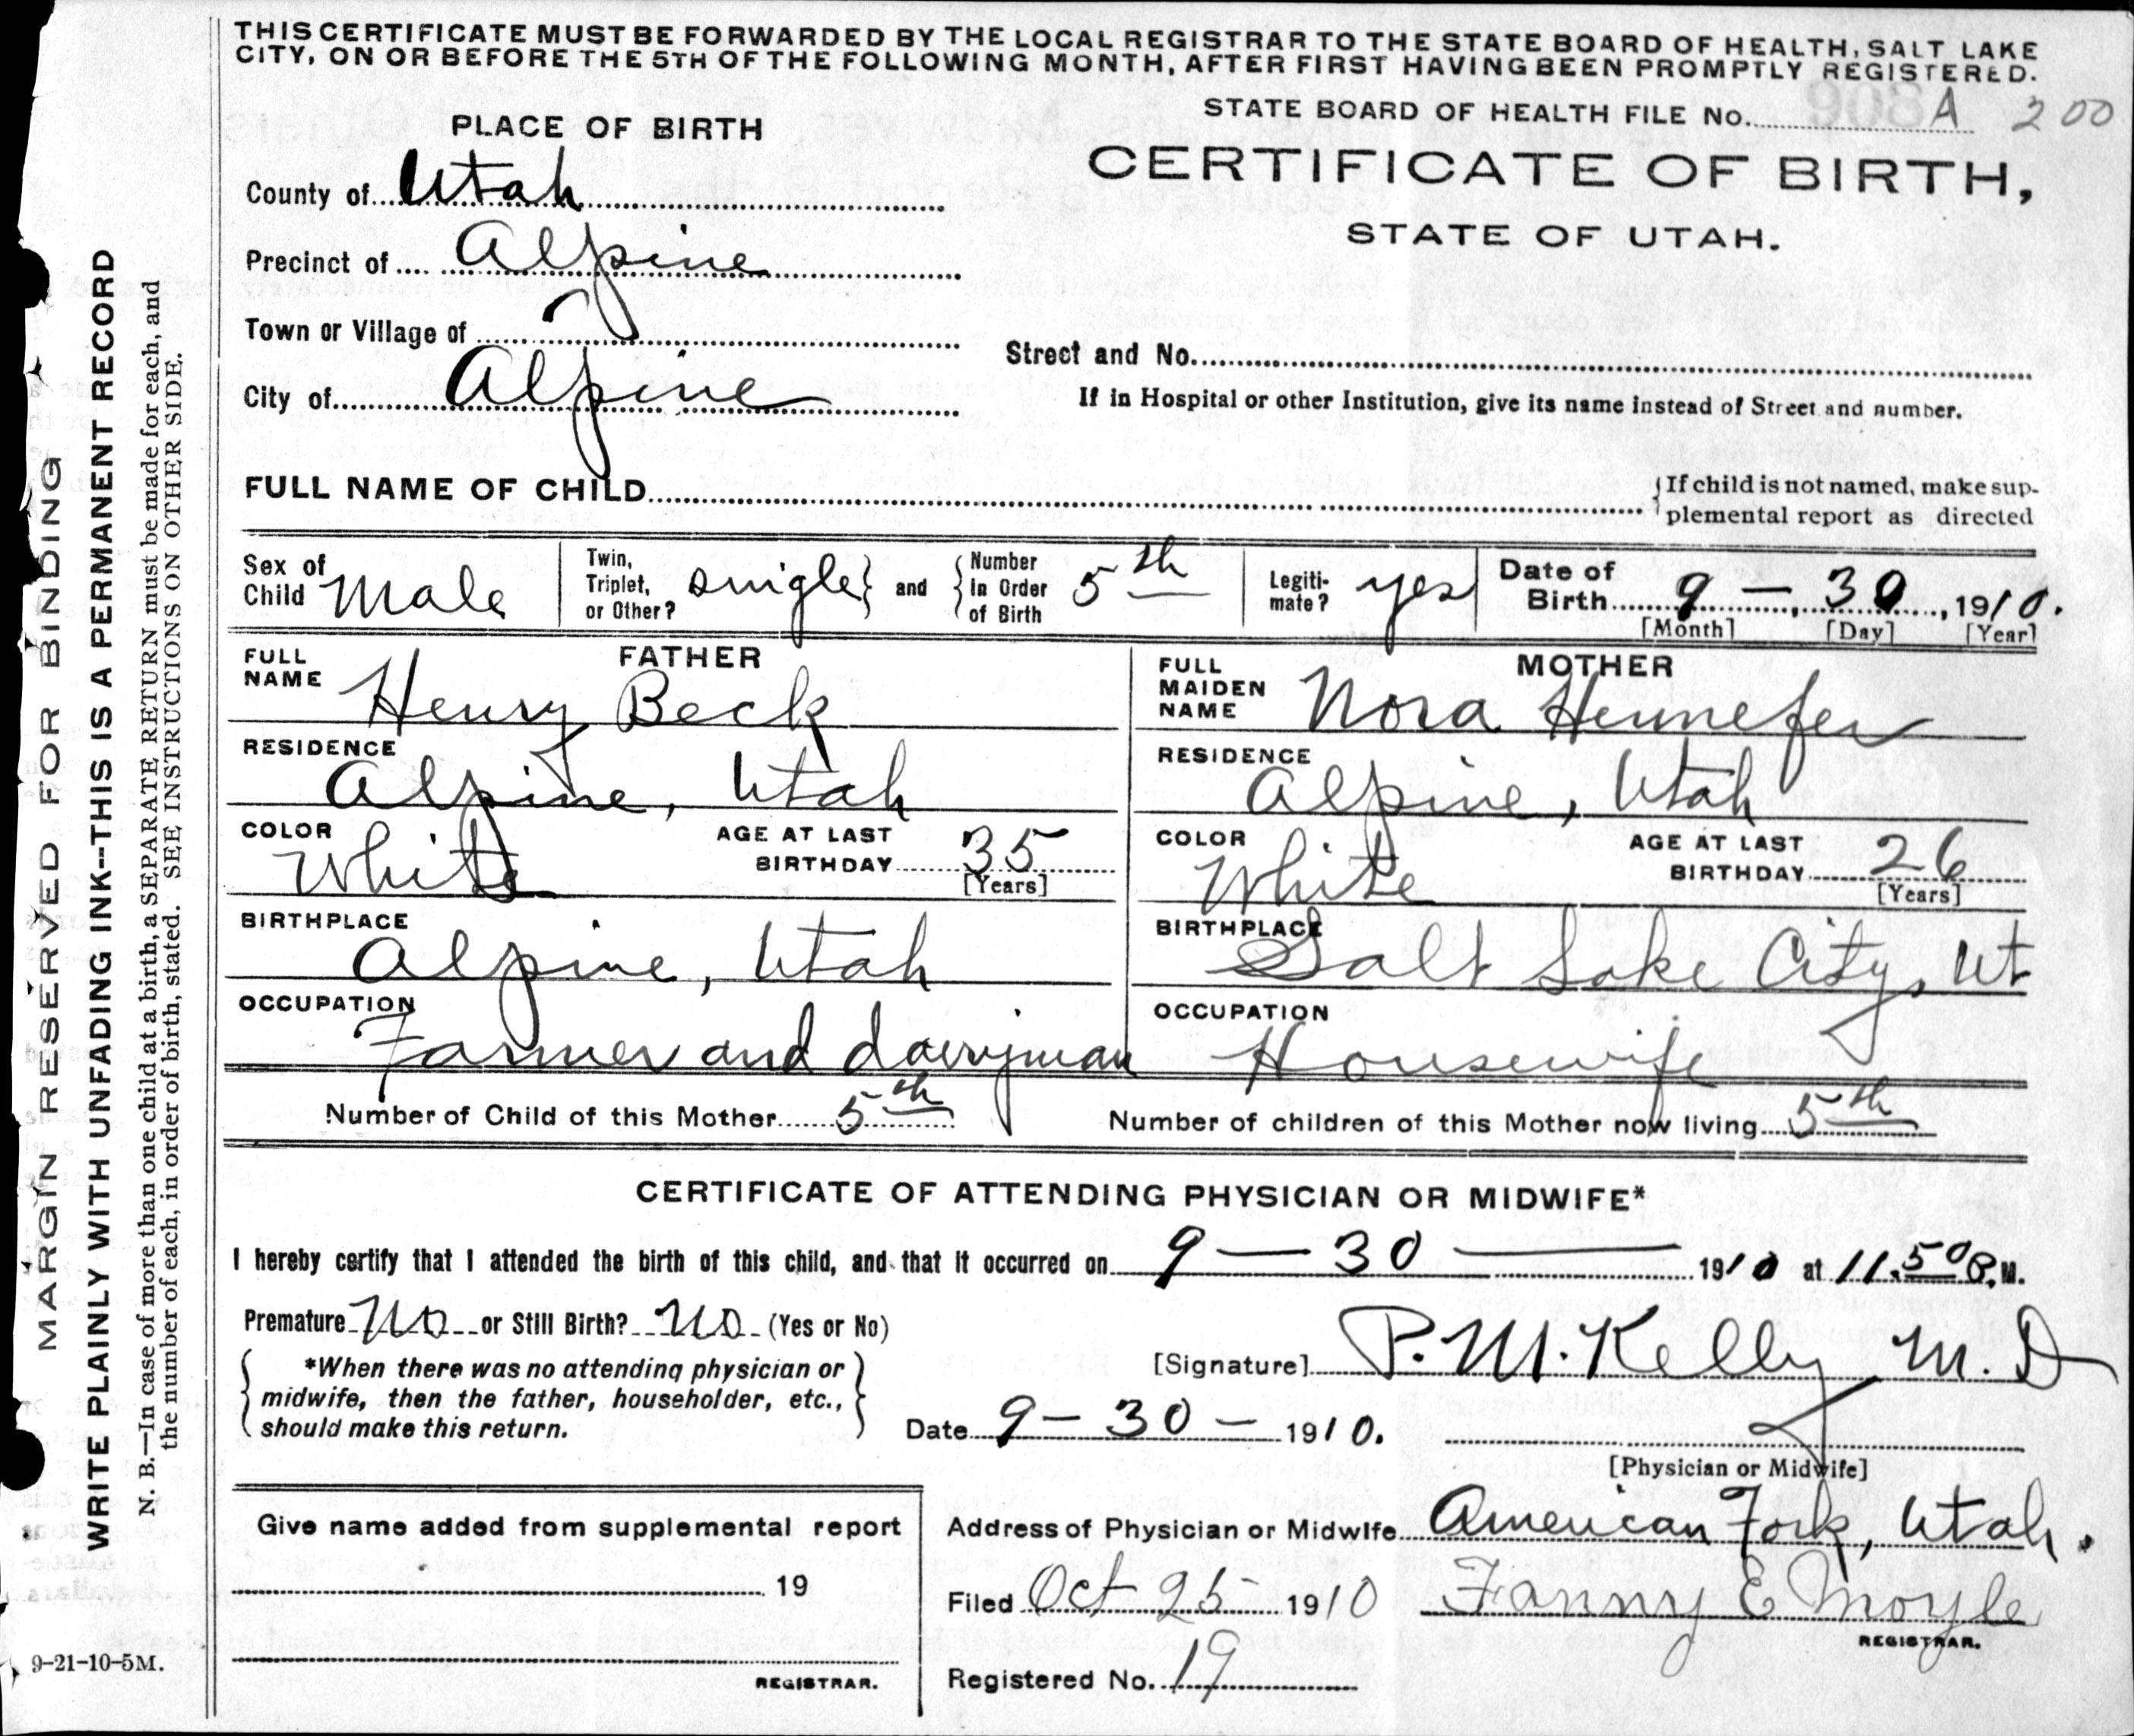 THIS CERTIFICATE MUST BE FORWARDED BY THE LOCAL REGISTRAR TO THE STATE BOARD OF HEALTH, SALT LAKE
CITY, ON OR BEFORE THE 5TH OF THE FOLLOWING MONTH, AFTER FIRST HAVING BEEN PROMPTLY REGISTERED.
STATE BOARD OF HEALTH FILE No. 908 A 200
PLACE OF BIRTH
CERTIFICATE OF BIRTH,
STATE OF UTAH.
County of Utah
Precinct of Alpine
Town or Village of
Street and No.
City of Alpine
If in Hospital or other Institution, give its name instead of Street and number.
FULL NAME OF CHILD
If child is not named, make sup-
plemental report as directed
Sex of
Child Male
Twin,
Triplet,
or Other? single and
Number
in Order
of Birth 5th
Legiti-
mate? yes
Date of
Birth 9 - 30, 1910.
[Month] [Day] [Year]
FATHER
FULL
NAME Henry Beck
MOTHER
FULL
MAIDEN
NAME Nora Hennefer
RESIDENCE
Alpine, Utah
RESIDENCE
Alpine, Utah
COLOR
White
AGE AT LAST
BIRTHDAY 35
[Years]
COLOR
White
AGE AT LAST
BIRTHDAY 26
[Years]
BIRTHPLACE
Alpine, Utah
BIRTHPLACE
Salt Lake City, Ut
OCCUPATION
Farmer and dairyman
OCCUPATION
Housewife
Number of Child of this Mother 5th
Number of children of this Mother now living 5th
CERTIFICATE OF ATTENDING PHYSICIAN OR MIDWIFE*
I hereby certify that I attended the birth of this child, and that it occurred on 9 — 30 — 1910 at 11.50 P.M.
Premature No or Still Birth? No (Yes or No)
*When there was no attending physician or
midwife, then the father, householder, etc.,
should make this return.
[Signature] P. M. Kelly M. D
Date 9 - 30 - 1910.
[Physician or Midwife]
Give name added from supplemental report
19
REGISTRAR.
Address of Physician or Midwife American Fork, Utah.
Filed Oct 25 1910 Fanny E Moyle
REGISTRAR.
Registered No. 19
MARGIN RESERVED FOR BINDING
WRITE PLAINLY WITH UNFADING INK--THIS IS A PERMANENT RECORD
N. B.—In case of more than one child at a birth, a SEPARATE RETURN must be made for each, and
the number of each, in order of birth, stated. SEE INSTRUCTIONS ON OTHER SIDE.
9-21-10-5M.